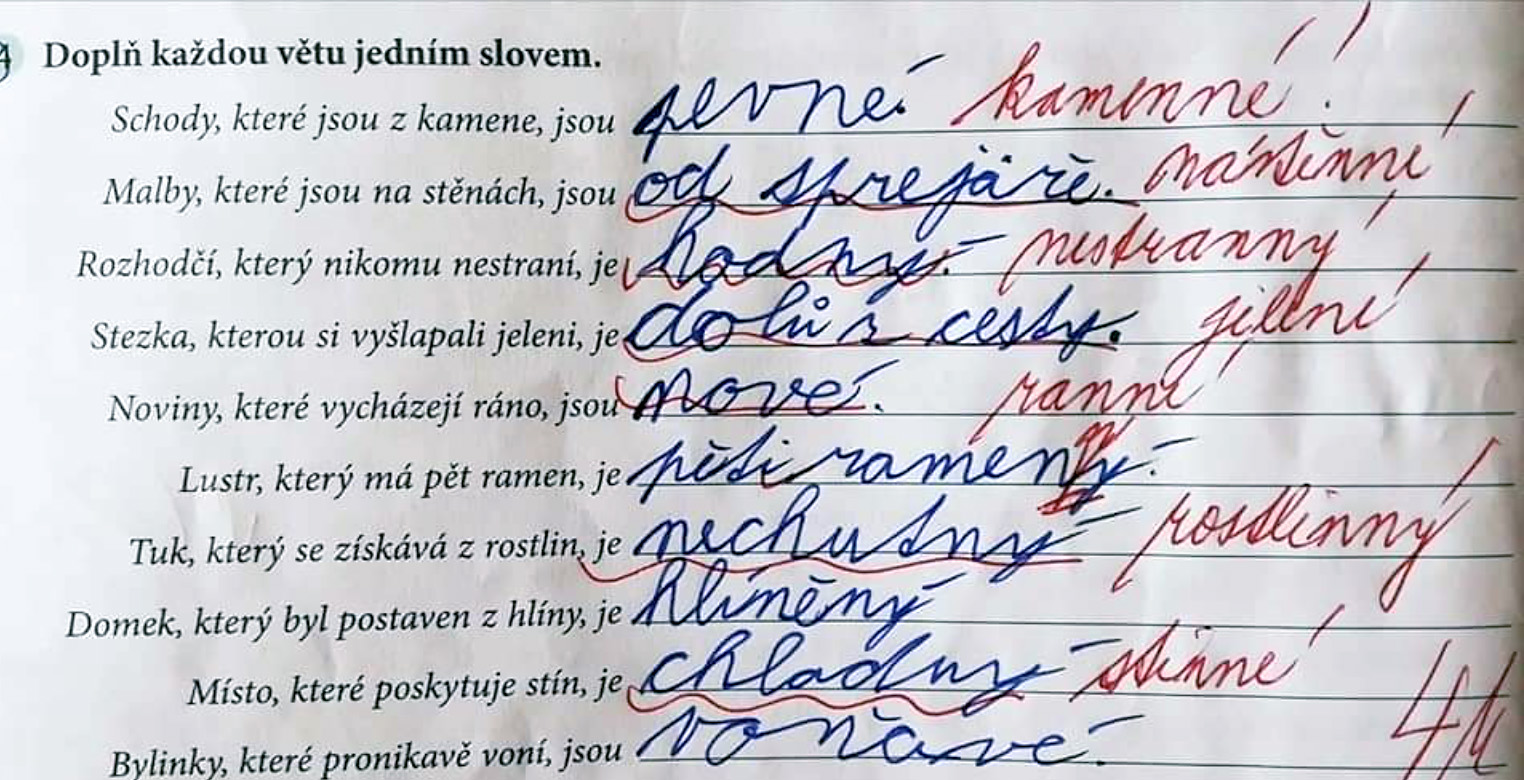 4 Doplň každou větu jedním slovem.
Schody, které jsou z kamene, jsou pevné. kamenné!
Malby, které jsou na stěnách, jsou od sprejaře. nástěnné
Rozhodčí, který nikomu nestraní, je hodný. nestranný
Stezka, kterou si vyšlapali jeleni, je dolů z cesty. jelení
Noviny, které vycházejí ráno, jsou nové. ranní
Lustr, který má pět ramen, je pěti ramenný.
Tuk, který se získává z rostlin, je nechutný rostlinný
Domek, který byl postaven z hlíny, je hliněný
Místo, které poskytuje stín, je chladný stinné
Bylinky, které pronikavě voní, jsou voňavé.